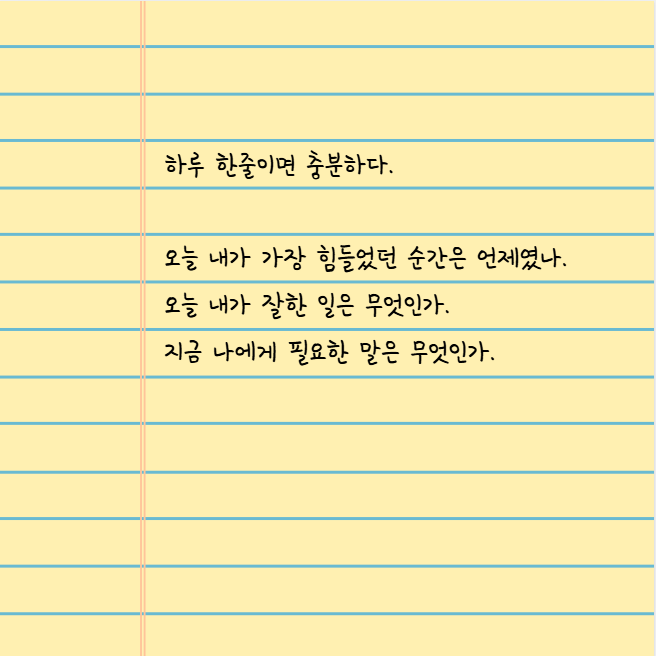 하루 한줄이면 충분하다.
오늘 내가 가장 힘들었던 순간은 언제였나.
오늘 내가 잘한 일은 무엇인가.
지금 나에게 필요한 말은 무엇인가.